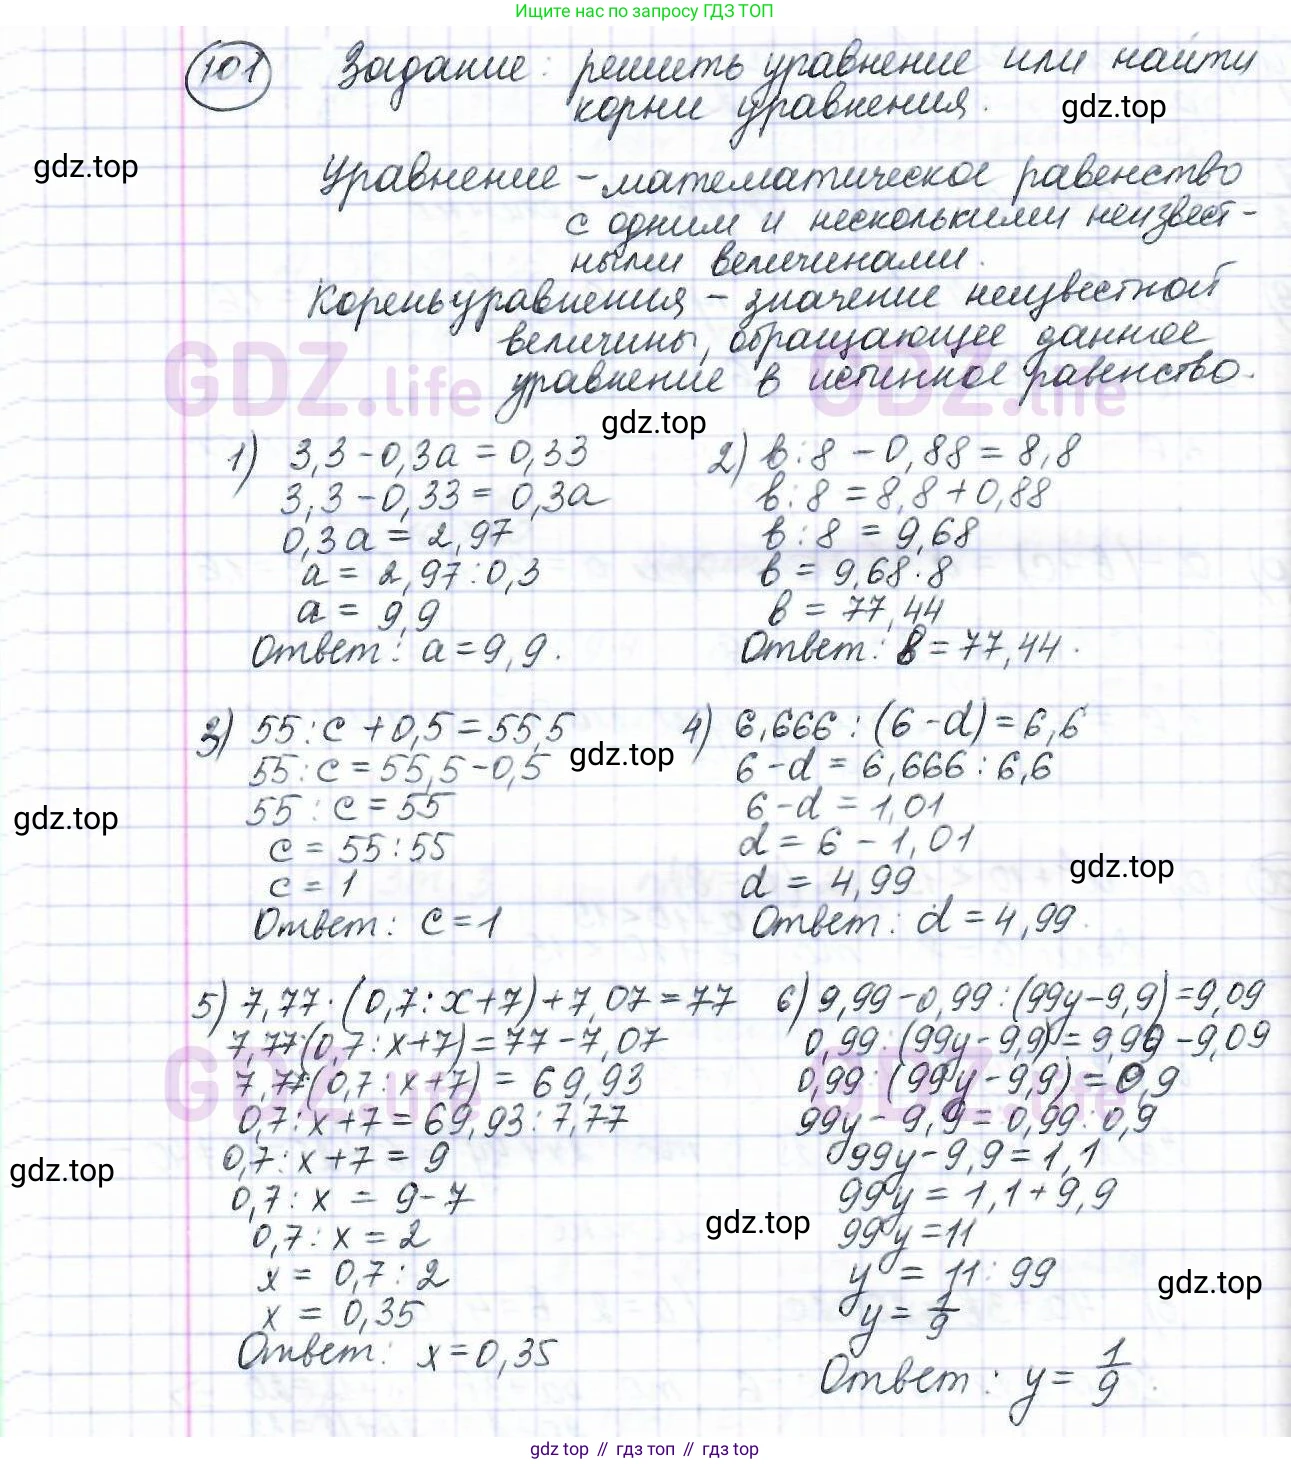 Ищите нас по запросу ГДЗ ТОП
101 Задание: решить уравнение или найти
корни уравнения.
gdz.top
gdz.top
Уравнение – математическое равенство
с одним и несколькими неизвест-
ными величинами.
Корень уравнения – значение неизвестной
величины, обращающее данное
уравнение в истинное равенство.
GDZ.life GDZ.life
gdz.top
1) 3,3 - 0,3a = 0,33
3,3 - 0,33 = 0,3a
0,3a = 2,97
a = 2,97 : 0,3
a = 9,9
Ответ: a = 9,9.
2) b : 8 - 0,88 = 8,8
b : 8 = 8,8 + 0,88
b : 8 = 9,68
b = 9,68 · 8
b = 77,44
Ответ: b = 77,44.
3) 55 : c + 0,5 = 55,5
55 : c = 55,5 - 0,5
55 : c = 55
c = 55 : 55
c = 1
Ответ: c = 1
gdz.top
gdz.top
4) 6,666 : (6 - d) = 6,6
6 - d = 6,666 : 6,6
6 - d = 1,01
d = 6 - 1,01
d = 4,99
Ответ: d = 4,99.
gdz.top
5) 7,77 · (0,7 : x + 7) + 7,07 = 77
7,77 · (0,7 : x + 7) = 77 - 7,07
7,77 · (0,7 : x + 7) = 69,93
0,7 : x + 7 = 69,93 : 7,77
0,7 : x + 7 = 9
0,7 : x = 9 - 7
0,7 : x = 2
x = 0,7 : 2
x = 0,35
Ответ: x = 0,35
GDZ.life GDZ.life
gdz.top
6) 9,99 - 0,99 : (99y - 9,9) = 9,09
0,99 : (99y - 9,9) = 9,99 - 9,09
0,99 : (99y - 9,9) = 0,9
99y - 9,9 = 0,99 : 0,9
99y - 9,9 = 1,1
99y = 1,1 + 9,9
99y = 11
y = 11 : 99
y = 1/9
Ответ: y = 1/9.
gdz.top
gdz.top
gdz top // гдз топ // гдз top